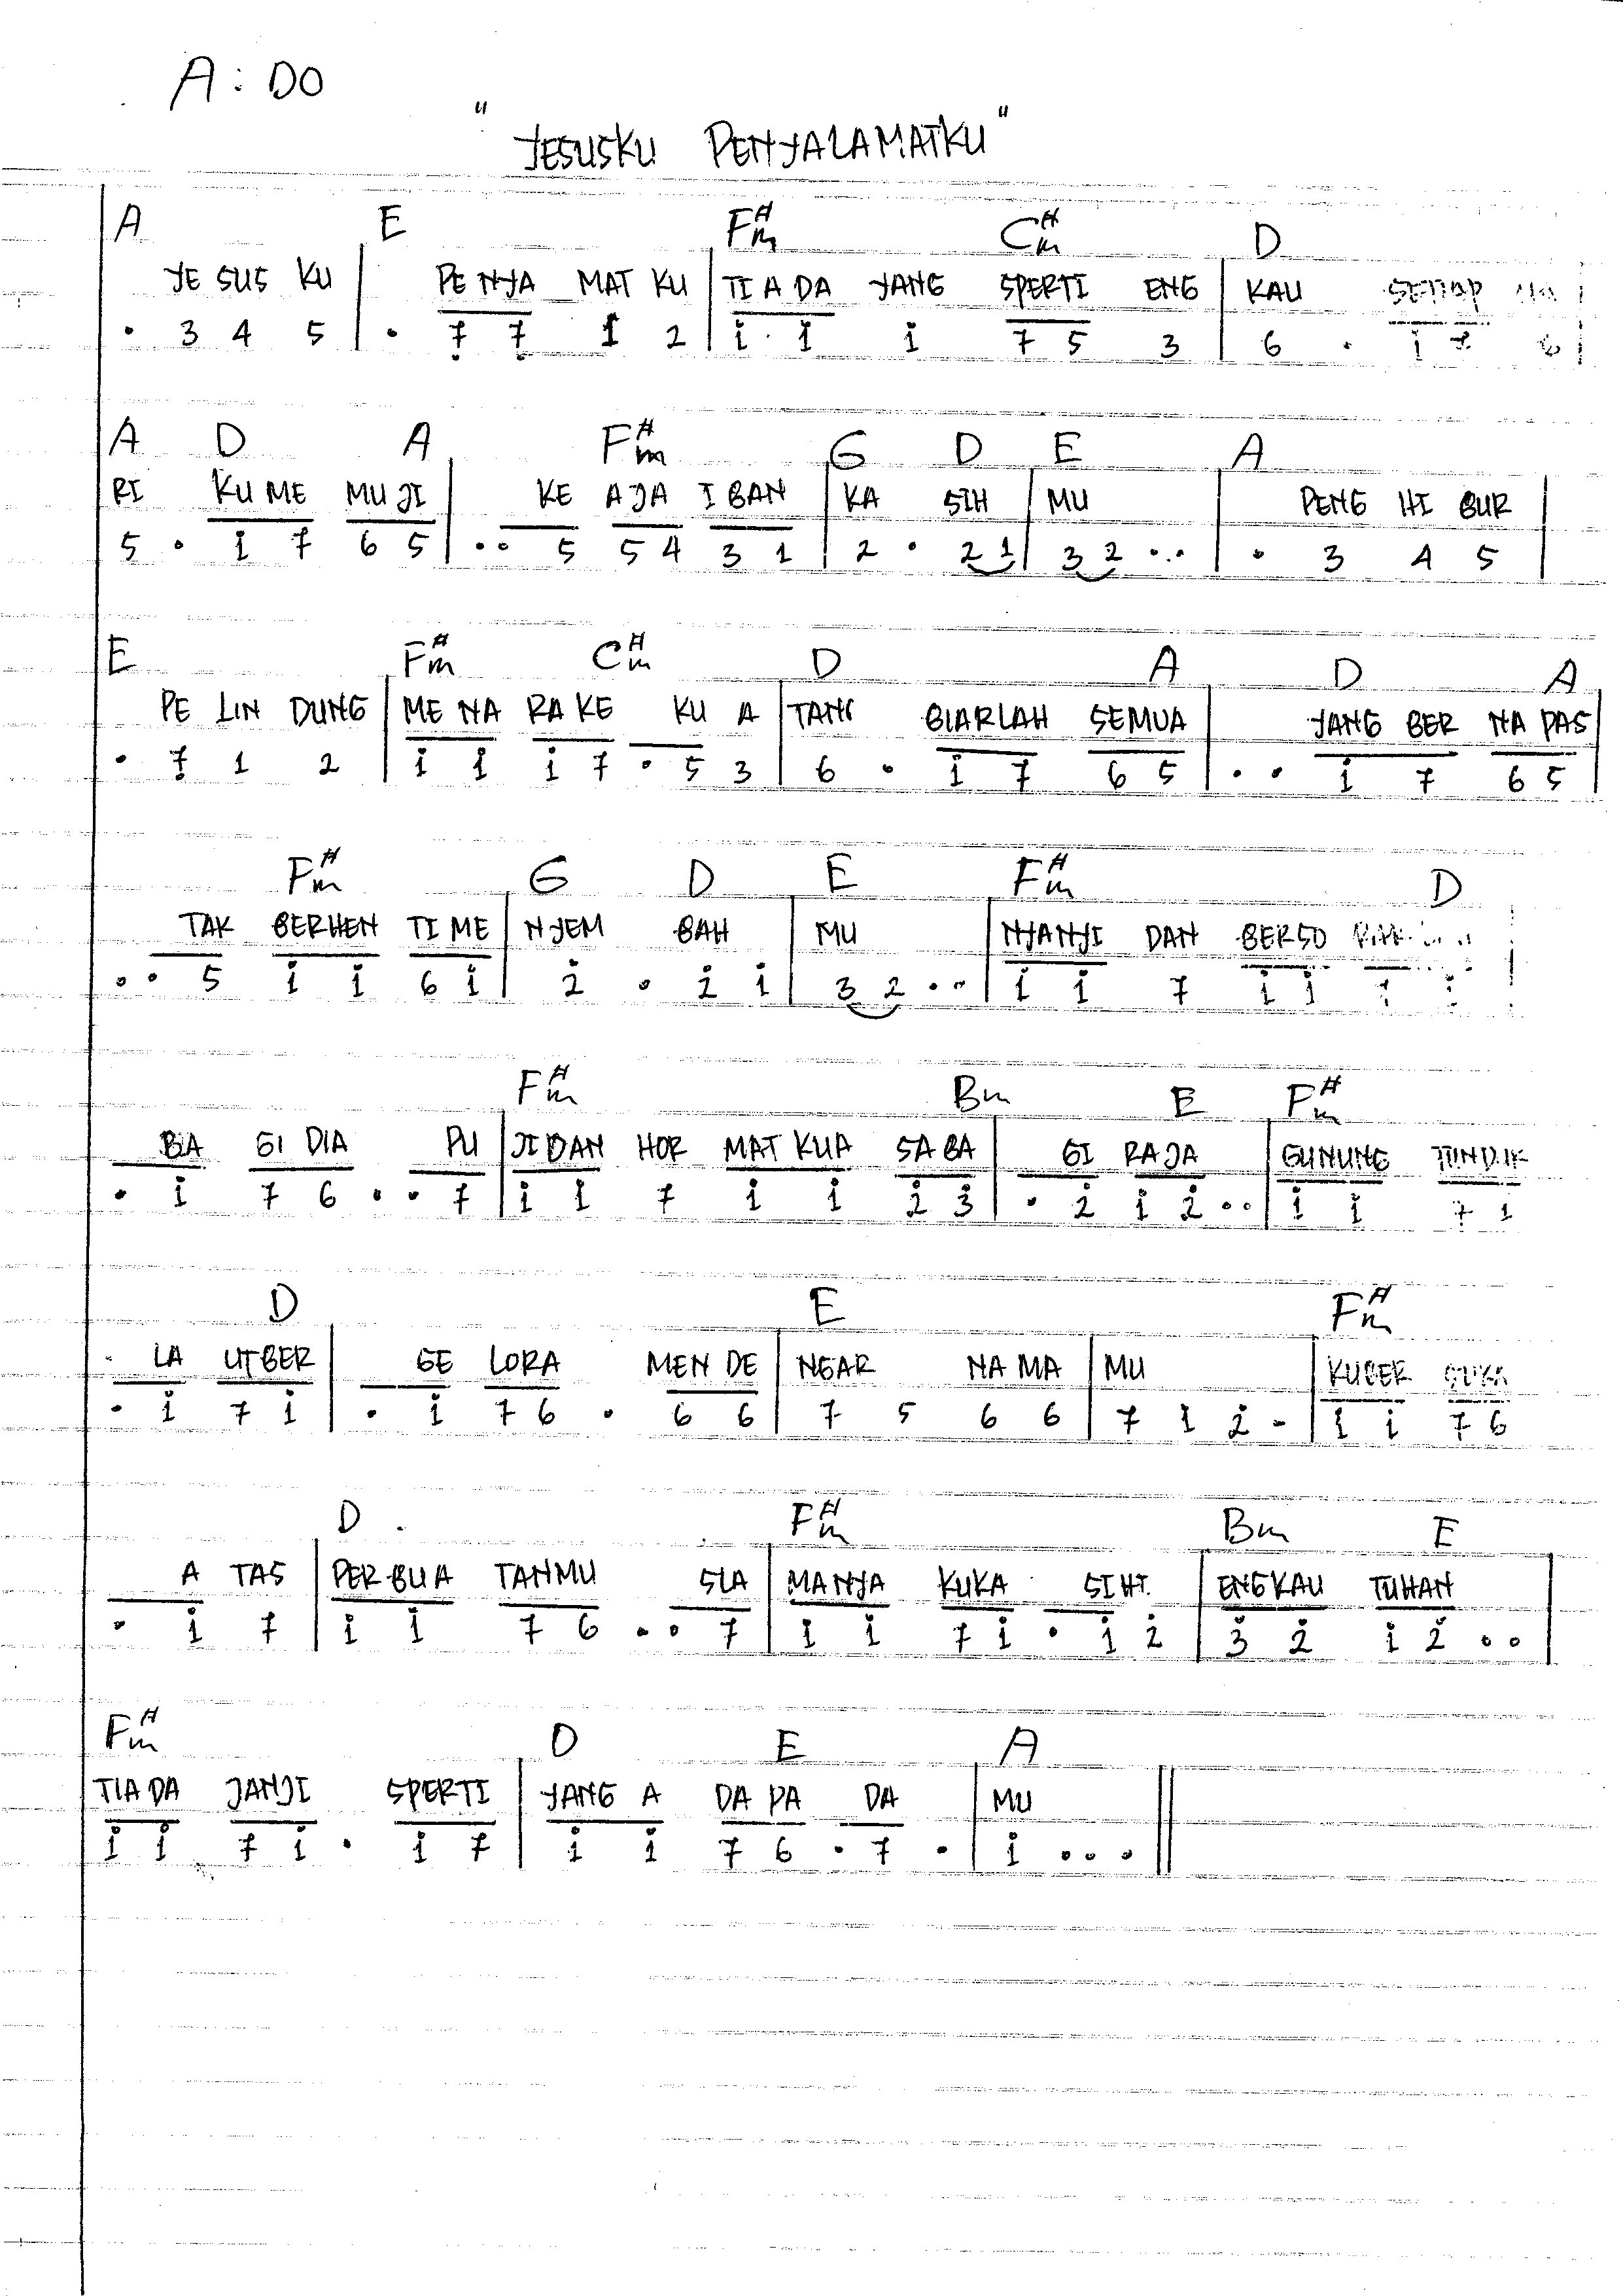 A : DO
"YESUSKU PENYALAMATKU"
A E F#m C#m D
YE SUS KU | PE NYA MAT KU | TI A DA YANG SPERTI ENG | KAU SETIAP
. 3 4 5 | . 7̣ 7̣ 1 2 | i i i 7 5 3 | 6 . i 7 6
A D A F#m G D E A
RI KU ME MUJI | KE AJA I BAN | KA SIH | MU | PENG HI BUR |
5 . i 7 6 5 | . . 5 5 4 3 1 | 2 . 2 1 | 3 2 . . | . 3 4 5 |
E F#m C#m D A D A
PE LIN DUNG | ME NA RA KE KU A | TANG BIARLAH SEMUA | YANG BER NA PAS
. 7̣ 1 2 | i i i 7 . 5 3 | 6 . i 7 6 5 | . . i 7 6 5 |
F#m G D E F#m D
TAK BERHEN TI ME | NYEM BAH | MU | NYANYI DAN BERSO
. . 5 i i 6 i | 2̇ . 2̇ i | 3 2 . . | i i 7 i i
F#m Bm E F#m
BA GI DIA PU | JI DAN HOR MAT KUA SA BA | GI RAJA | GUNUNG TUNDUK
. i 7 6 . . 7 | i i 7 i i 2̇ 3̇ | . 2̇ i 2̇ . . | i i 7 1
D E F#m
LA UTBER | GE LORA MEN DE | NGAR NA MA | MU | KUBER SUKA
. i 7 i | . i 7 6 . 6 6 | 7 5 6 6 | 7 1 2̇ - | i i 7 6
D F#m Bm E
A TAS | PER BUA TANMU SLA | MANYA KUKA SIHI | ENGKAU TUHAN
. i 7 | i i 7 6 . . 7 | i i 7 i . i 2̇ | 3̇ 2̇ i 2̇ . . |
F#m D E A
TIADA JANJI SPERTI | YANG A DA PA DA | MU
i i 7 i . i 7 | i i 7 6 . 7 . | i . . . ||